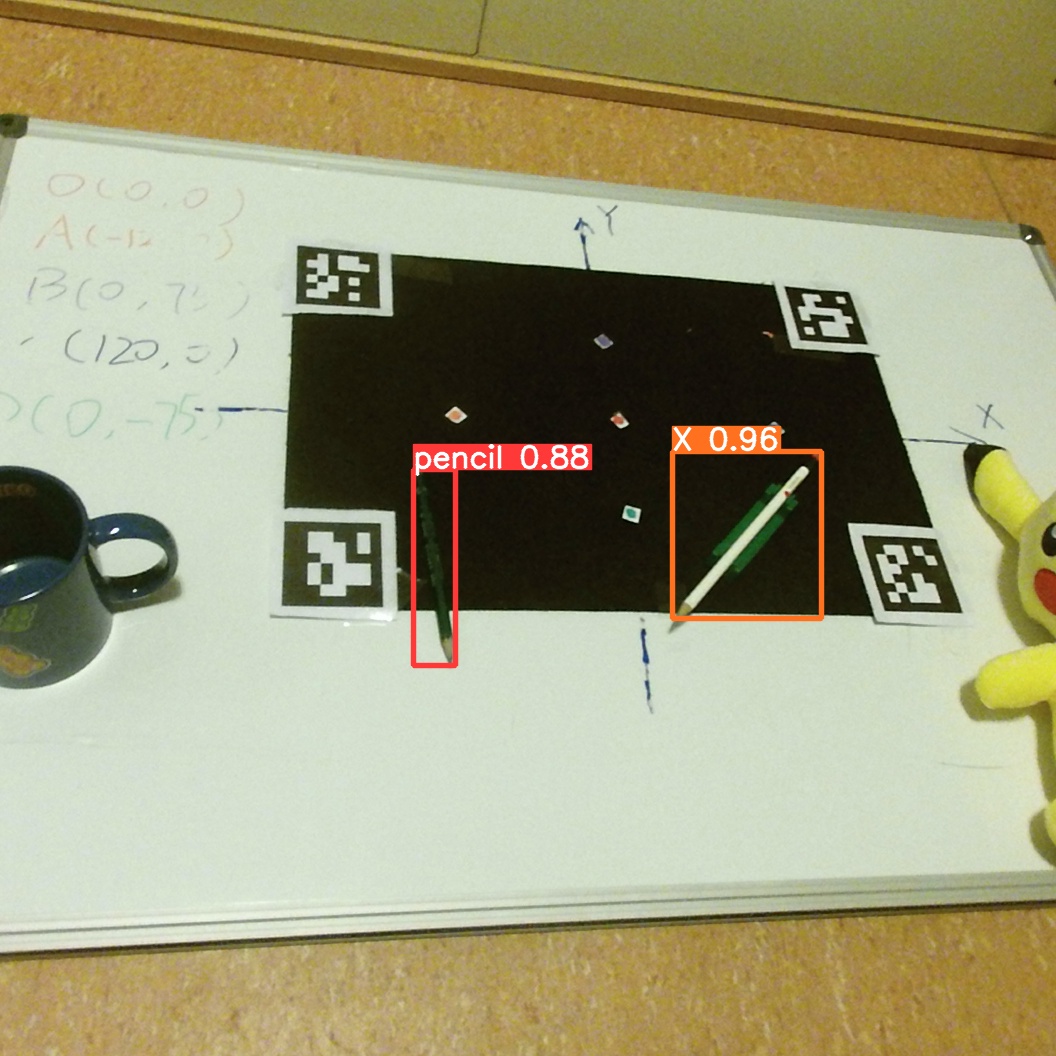 O(0,0)
A(-12
B(0,75)
(120,0)
(0,-75)
Y
X
pencil 0.88
X 0.96